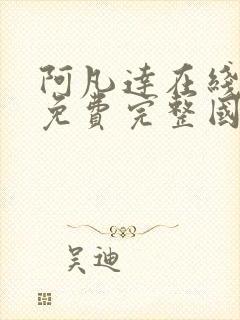 阿凡達在綫
免費完整國
吴迪